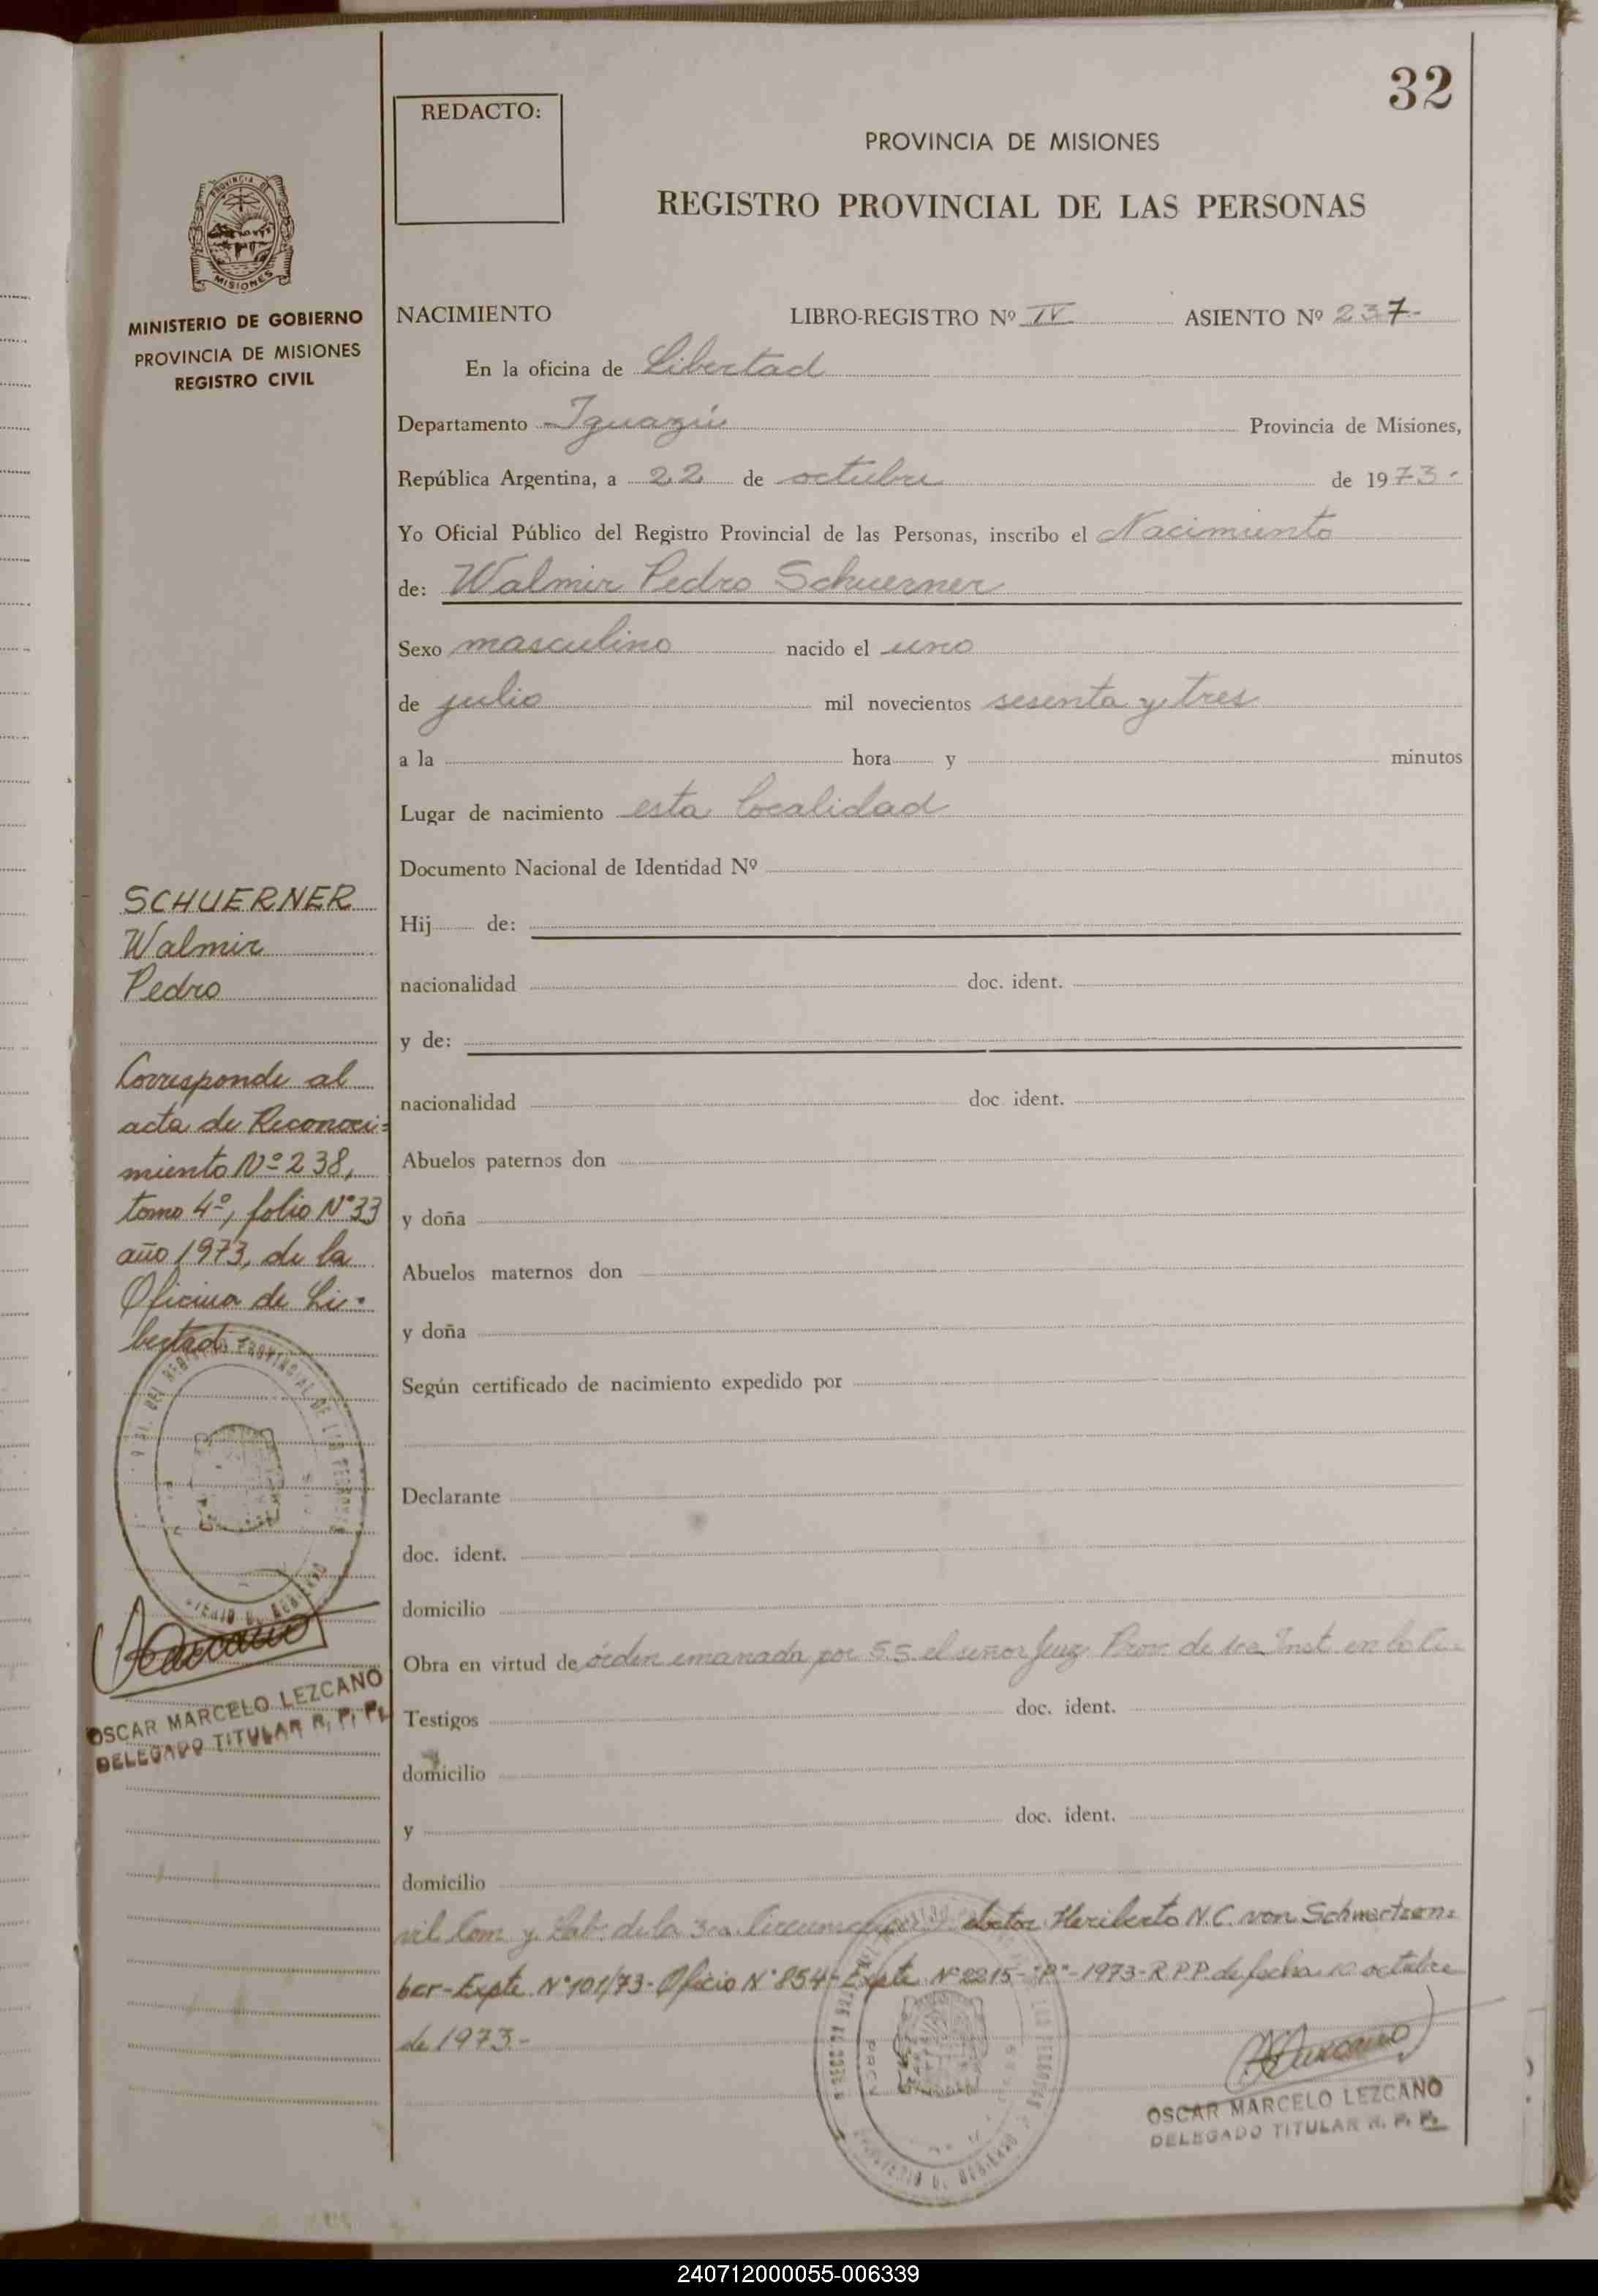 32
REDACTO:
PROVINCIA DE MISIONES
REGISTRO PROVINCIAL DE LAS PERSONAS
MISIONES
MINISTERIO DE GOBIERNO
PROVINCIA DE MISIONES
REGISTRO CIVIL
NACIMIENTO LIBRO-REGISTRO Nº IV ASIENTO Nº 237-
En la oficina de Libertad
Departamento Iguazú Provincia de Misiones,
República Argentina, a 22 de octubre de 1973-
Yo Oficial Público del Registro Provincial de las Personas, inscribo el Nacimiento
de: Walmir Pedro Schuerner
Sexo masculino nacido el uno
de julio mil novecientos sesenta y tres
a la hora y minutos
Lugar de nacimiento esta localidad
Documento Nacional de Identidad Nº
Hij de:
nacionalidad doc. ident.
y de:
nacionalidad doc. ident.
Abuelos paternos don
y doña
Abuelos maternos don
y doña
Según certificado de nacimiento expedido por
Declarante
doc. ident.
domicilio
Obra en virtud de órden emanada por S.S. el señor Juez Prov. de 1ra Inst. en lo Ci-
Testigos doc. ident.
domicilio
y doc. ident.
domicilio
vil Com. y Lab. de la 3ra. doctor Heriberto N.C. von Schwartzen-
ber-Expte. Nº 101/73- Oficio Nº 854- Expte Nº 2215-"P"-1973-R.P.P. de fecha 10 octubre
de 1973.-
OSCAR MARCELO LEZCANO
DELEGADO TITULAR R. P. P.
SCHUERNER
Walmir
Pedro
Corresponde al
acta de Reconoci-
miento Nº 238,
tomo 4º, folio Nº 33
año 1973, de la
Oficina de Li-
bertad.-
OSCAR MARCELO LEZCANO
DELEGADO TITULAR R. P. P.
240712000055-006339